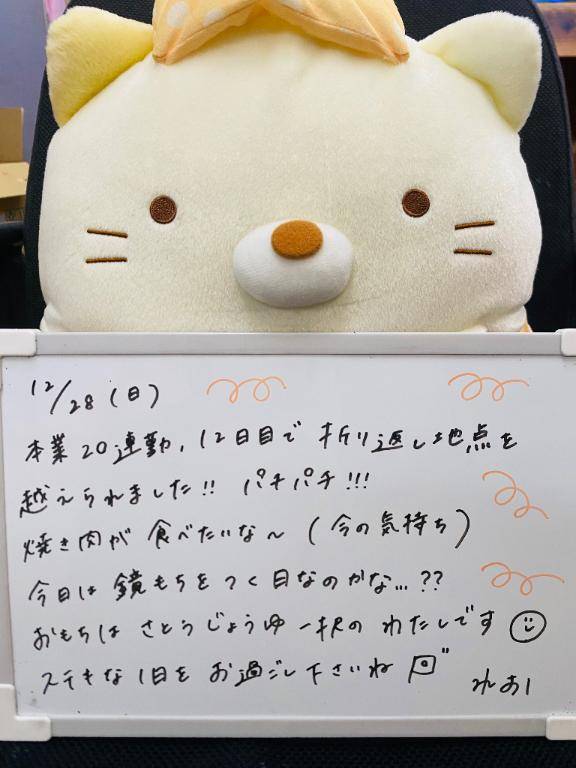 12/28(日)
本業20連勤、12日目で折り返し地点を
越えられました!! パチパチ!!!
焼き肉が食べたいな〜(今の気持ち)
今日は鏡もちをつく日なのかな...??
おもちはさとうじょうゆ一択のわたしです
ステキな1日をお過ごし下さいね